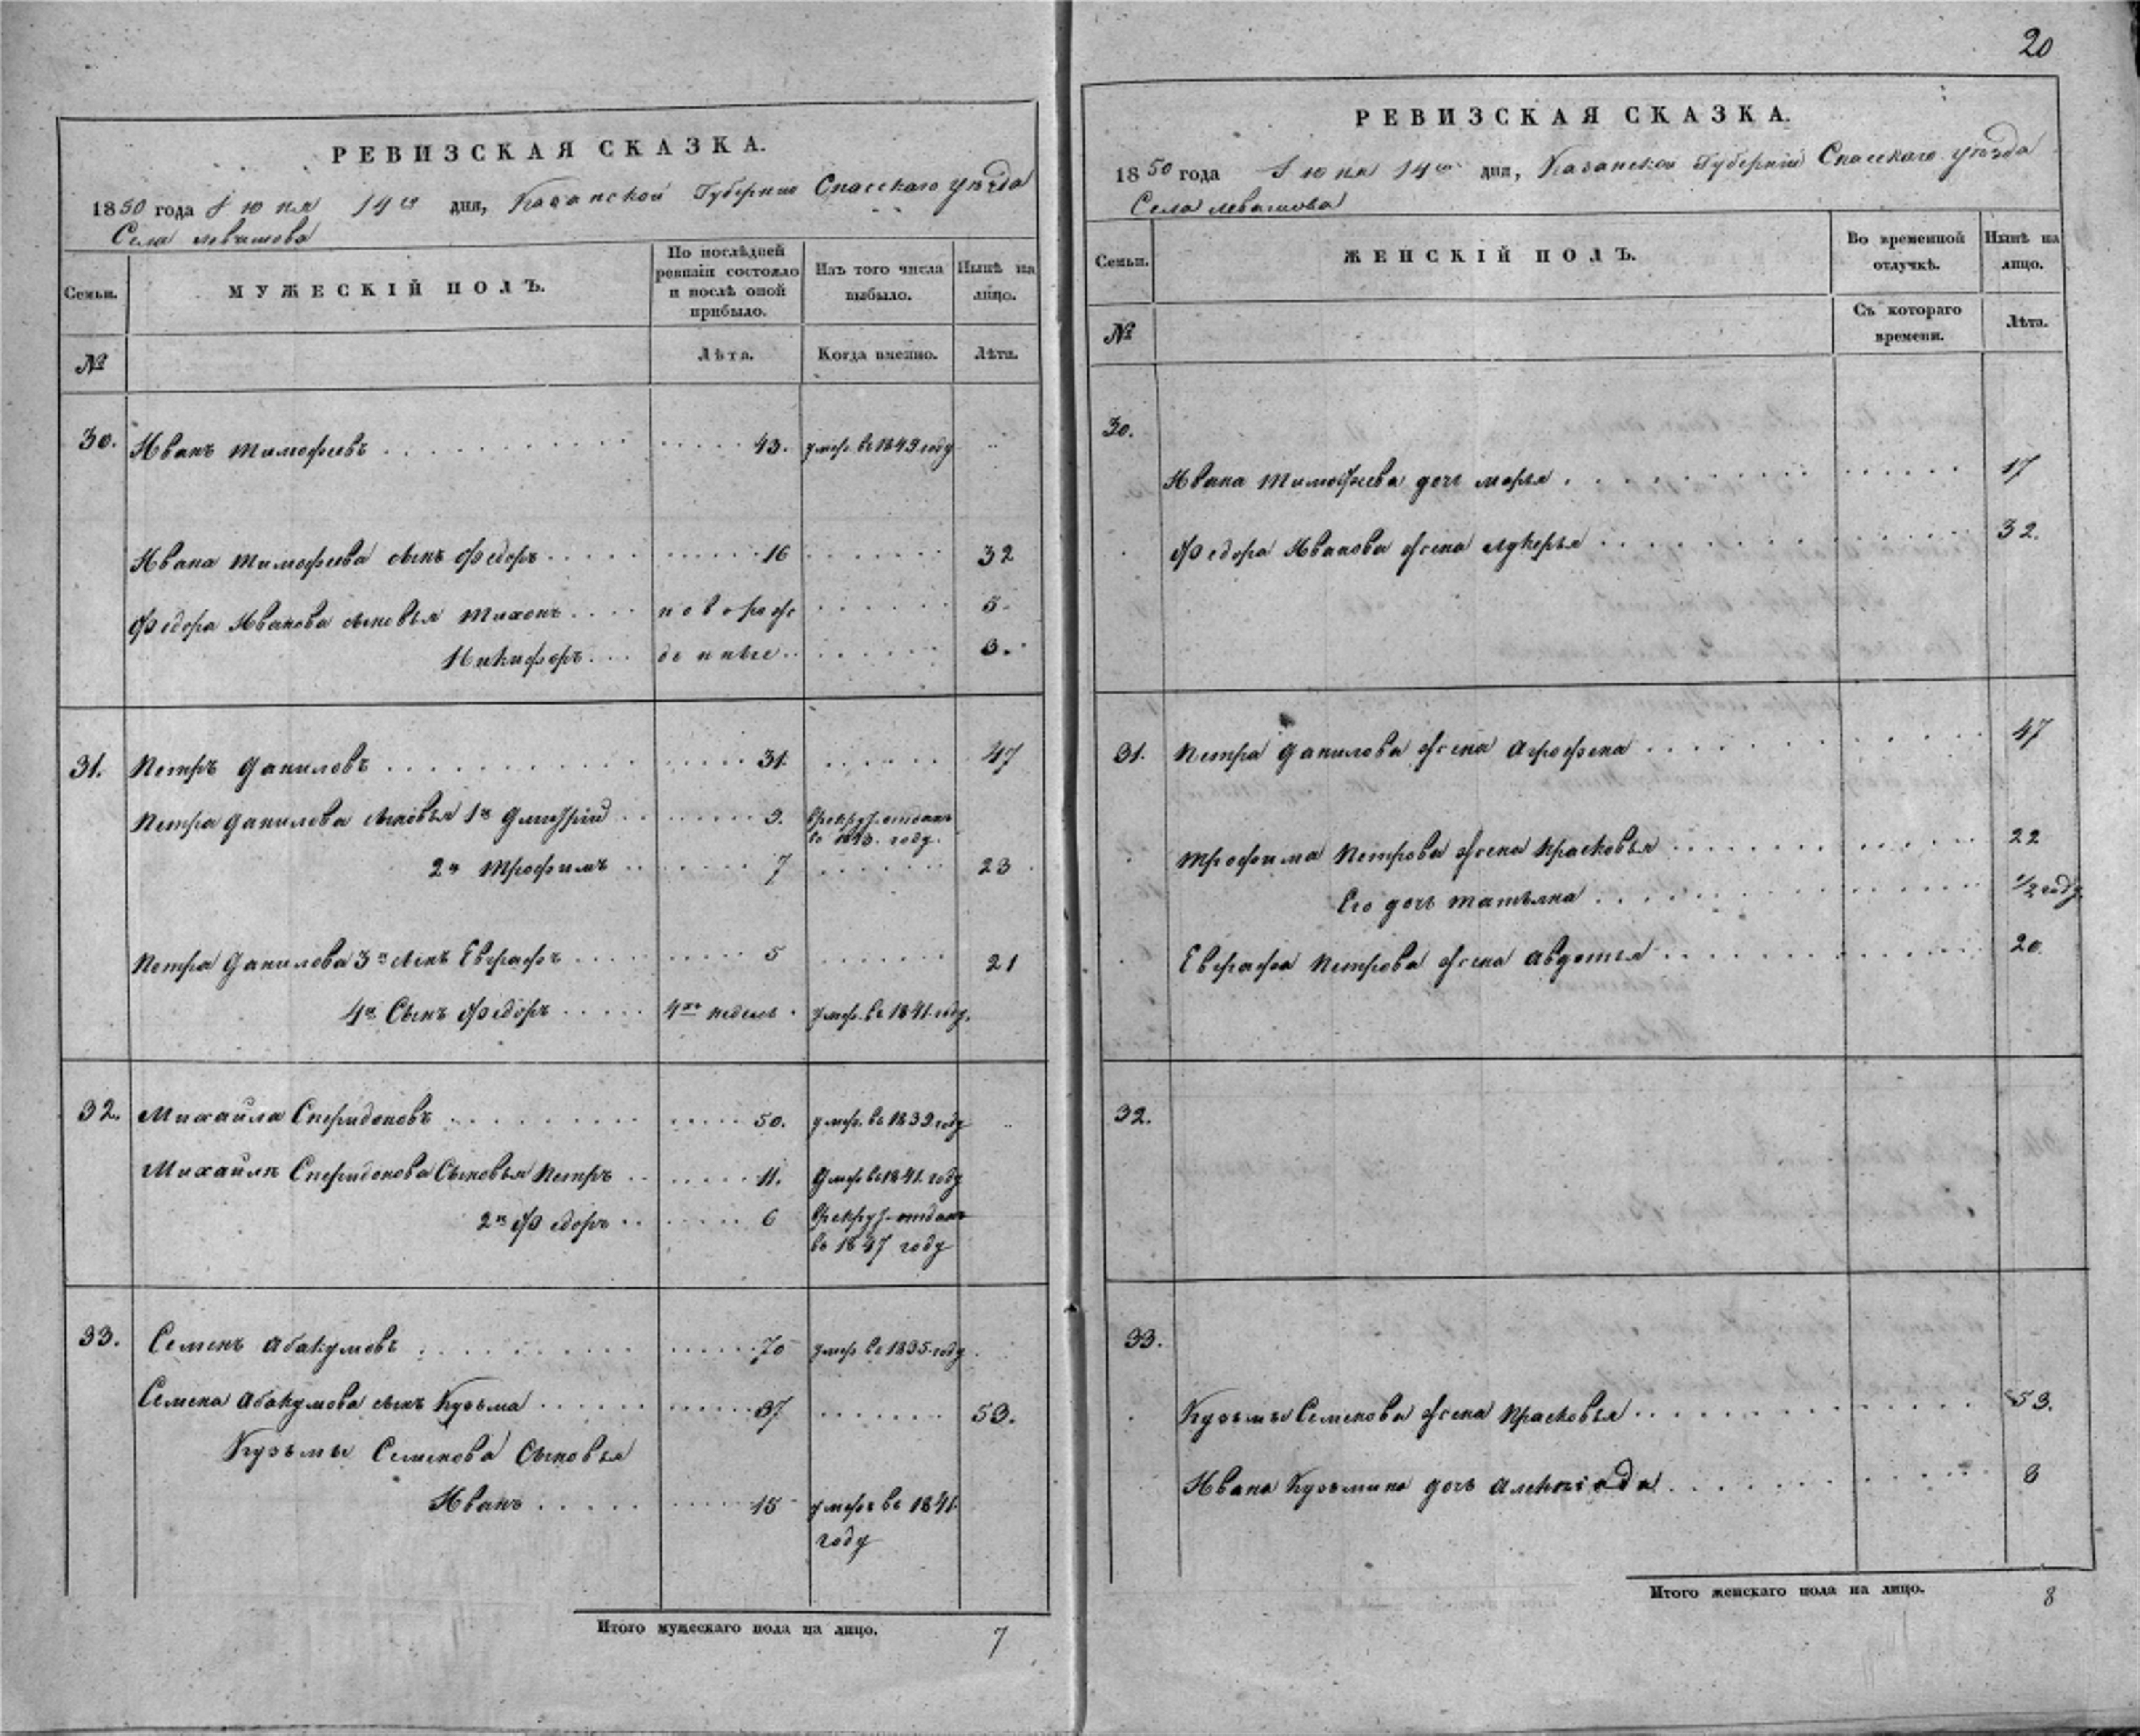 20
РЕВИЗСКАЯ СКАЗКА.
1850 года Июня 14го дня, Казанской Губернии Спасскаго уѣзда
Села Левашова
Семьи.
МУЖЕСКІЙ ПОЛЪ.
По послѣдней ревизіи состояло и послѣ оной прибыло.
Изъ того числа выбыло.
Нынѣ на лицо.
№
Лѣта.
Когда именно.
Лѣта.
30. Иванъ Тимофѣевъ 43. умеръ въ 1849 году
Ивана Тимофѣева сынъ Федоръ 16 32
Федора Иванова сыновья Тихонъ новорож 5.
Никифоръ денные 3.
31. Петръ Даниловъ 31. 47
Петра Данилова сыновья 1й Дмитрій 9. Врекрут. отданъ
въ 1843. году.
2й Трофимъ 7 23
Петра Данилова 3й сынъ Евграфъ 5 21
4й Сынъ Федоръ 4хъ недель умер. въ 1841. году.
32. Михайла Спиридоновъ 50. умер. въ 1839 году
Михайла Спиридонова Сыновья Петръ 11. Умер въ 1841. году
2й Федоръ 6 Врекрут. отданъ
въ 1847 году
33. Семенъ Абакумовъ 70 умер въ 1835. году
Семена Абакумова сынъ Кузьма 37 53.
Кузьмы Семенова Сыновья
Иванъ 15 умеръ въ 1841.
году
Итого мужескаго пола на лицо. 7
РЕВИЗСКАЯ СКАЗКА.
1850 года Июня 14го дня, Казанской Губерніи Спасскаго уѣзда
Села Левашова
Семьи.
ЖЕНСКІЙ ПОЛЪ.
Во временной отлучкѣ.
Нынѣ на лицо.
№
Съ котораго времени.
Лѣта.
30.
Ивана Тимофѣева дочь Марья 17
Федора Иванова жена Лукерья 32.
31. Петра Данилова жена Аграфена 47
Трофима Петрова жена Прасковья 22
Его дочь Татьяна 1/2 году.
Евграфа Петрова жена Авдотья 20.
32.
33.
Кузьмы Семенова жена Прасковья 53.
Ивана Кузьмина дочь 8
Итого женскаго пола на лицо. 8